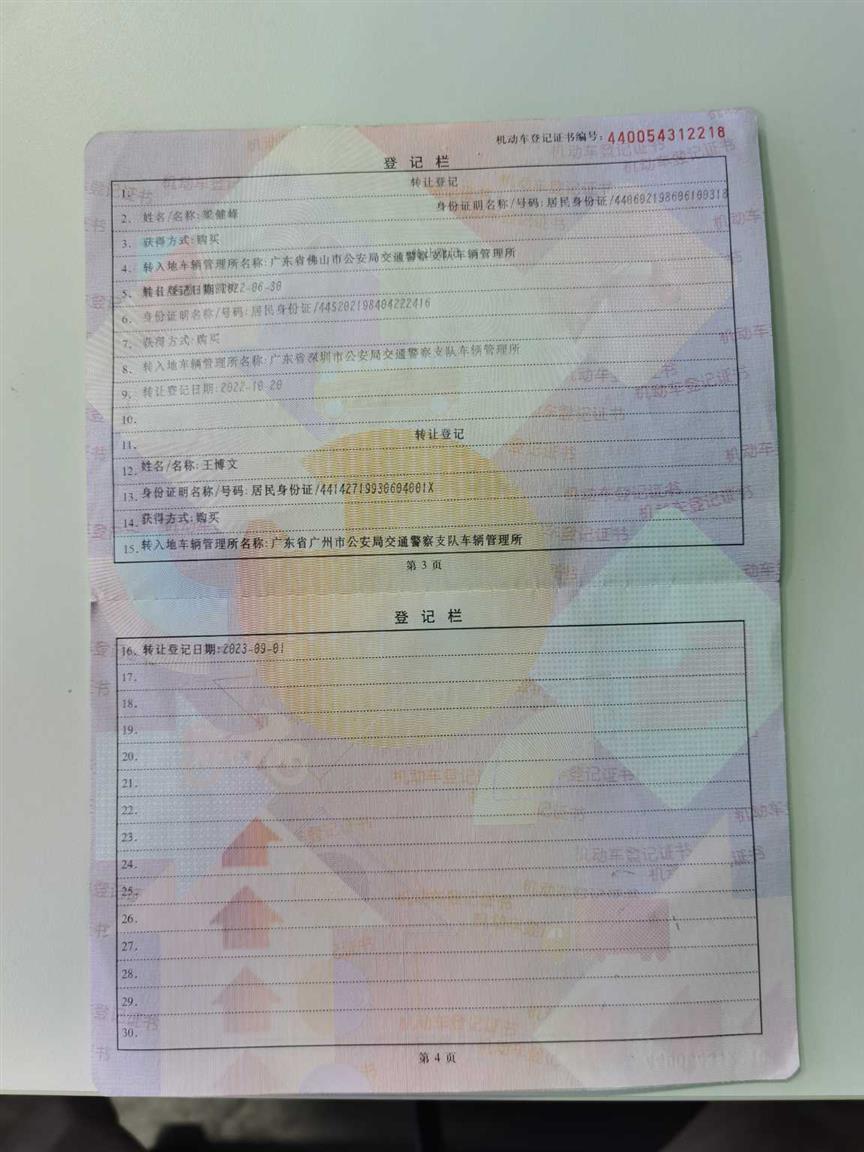 机动车登记证书编号: 440054312218
登记栏
1. 转让登记
2. 姓名/名称: 梁健峰 身份证明名称/号码: 居民身份证/440602198606100318
3. 获得方式: 购买
4. 转入地车辆管理所名称: 广东省佛山市公安局交通警察支队车辆管理所
5. 转让登记日期: 2022-06-30
6. 身份证明名称/号码: 居民身份证/445202198404222416
7. 获得方式: 购买
8. 转入地车辆管理所名称: 广东省深圳市公安局交通警察支队车辆管理所
9. 转让登记日期: 2022-10-20
10.
11. 转让登记
12. 姓名/名称: 王博文
13. 身份证明名称/号码: 居民身份证/44142719930604001X
14. 获得方式: 购买
15. 转入地车辆管理所名称: 广东省广州市公安局交通警察支队车辆管理所
第 3 页
登记栏
16. 转让登记日期: 2023-09-01
17.
18.
19.
20.
21.
22.
23.
24.
25.
26.
27.
28.
29.
30.
第 4 页